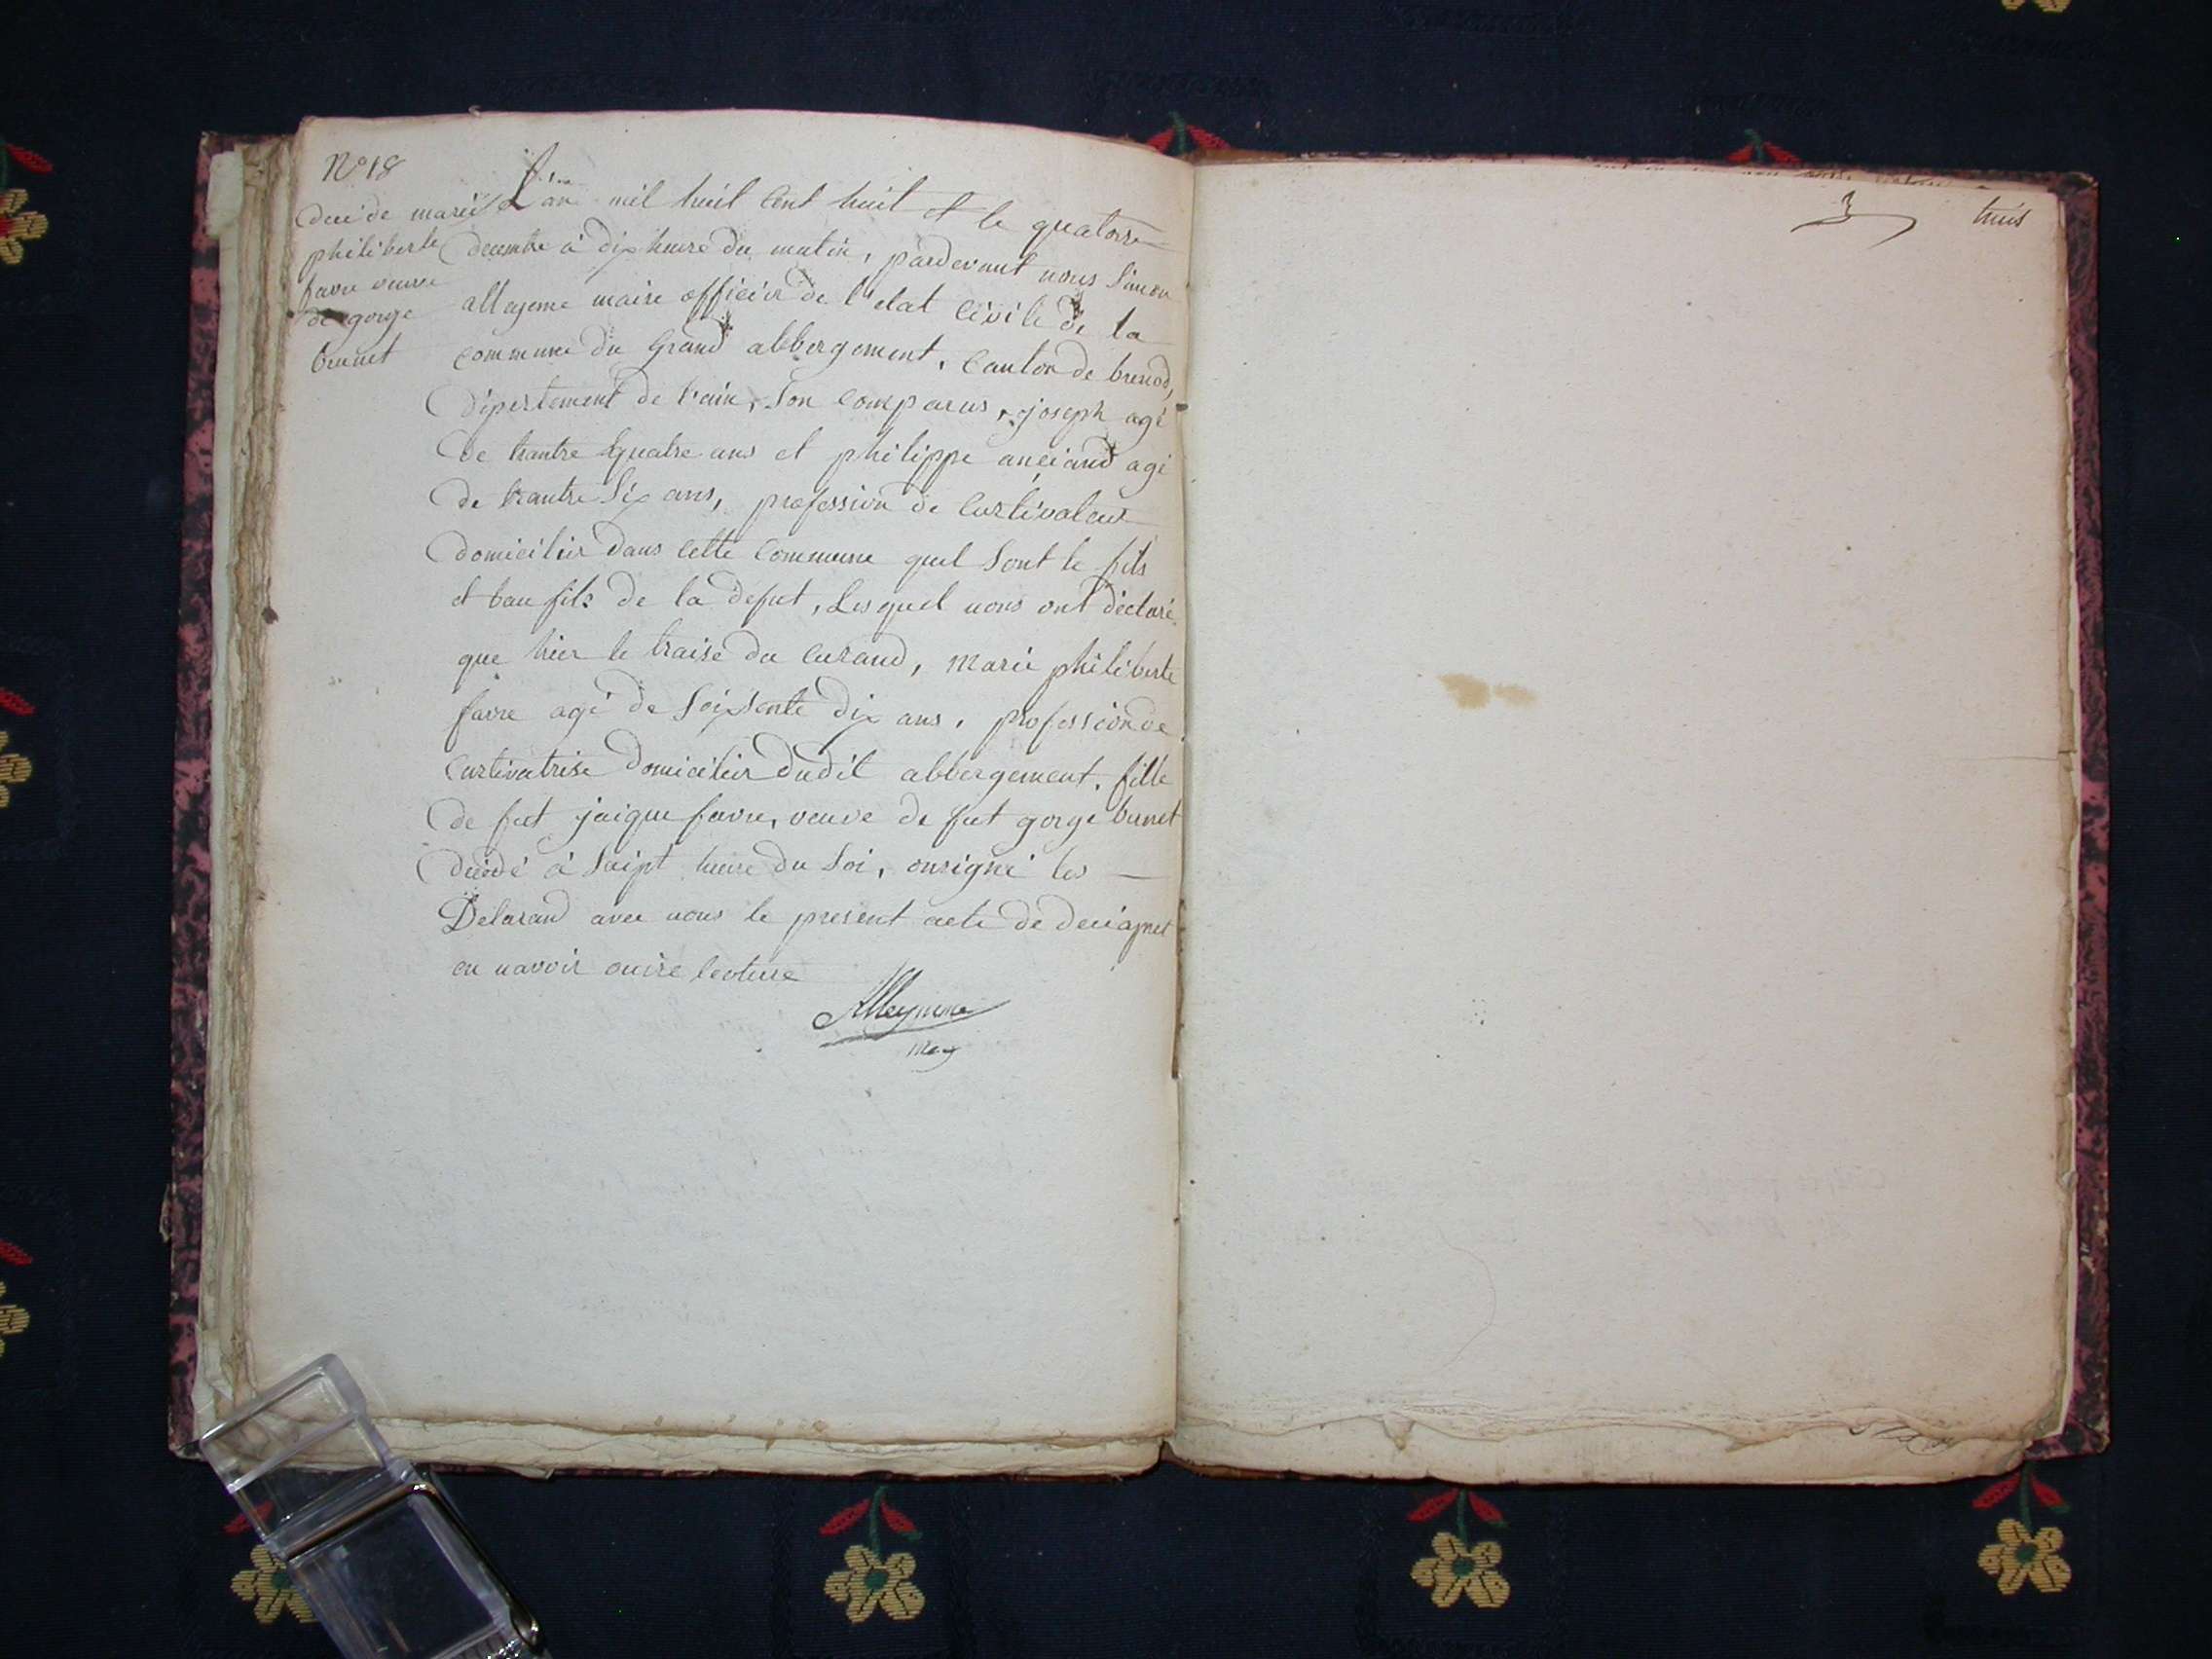 N° 18
decé de marie
philiberte
favre veuve
de gorge
brunet
L'an mil huit cent huit et le quatorze
decembre à dix heure du matin, pardevant nous Simon
allayeme maire officier de l'etat civile de la
commune du Grand abbergement, canton de brenod,
département de l'ain, Son comparus, joseph agé
de trantre quatre ans et philippe anciand agé
de trantre Six ans, profession de curtivateur
domicilier dans cette commune quel Sont le fils
et bau fils de la defut, Lesquel nous ont déclaré
que hier le traise du curand, marie philiberte
favre agé de Soixsente dix ans, profession de
curtivatrise domicilier dudit abbergement, fille
de fut jaique favre, veuve de fut gorge bunet
décédé à Saipt heure du Soi, onsigné les
Delarand avec nous le present acte de decé apret
en navoir ouire lecture
3 trois